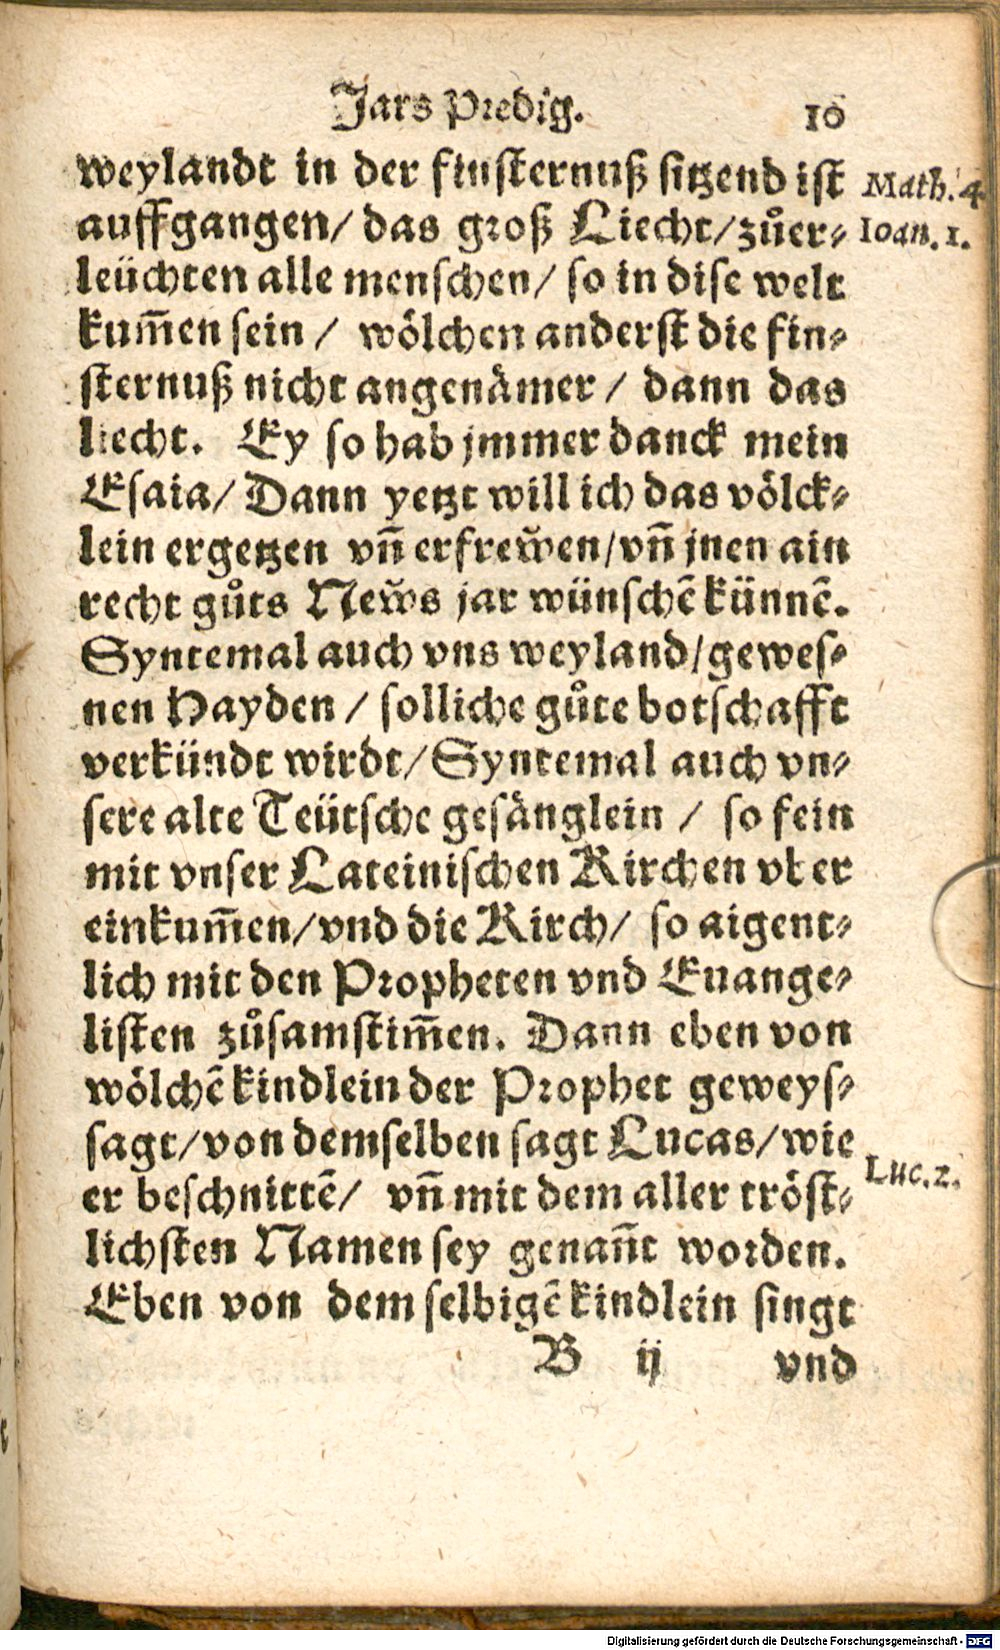 Jars Predig. 10
weylandt in der finsternuß sitzend ist Math. 4
auffgangen/ das groß Liecht/ zůer- Ioan. 1.
leüchten alle menschen/ so in dise welt
kum̃en sein / wölchen anderst die fin-
sternuß nicht angenämer / dann das
liecht. Ey so hab jmmer danck mein
Esaia/ Dann yetzt will ich das völck-
lein ergetzen vñ erfrew̆en/vñ jnen ain
recht gůts New̆s jar wünschẽ künnẽ.
Syntemal auch vns weyland/gewes-
nen Hayden / solliche gůte botschafft
verkündt wirdt/ Syntemal auch vn-
sere alte Teütsche gesänglein / so fein
mit vnser Lateinischen Kirchen vber
einkum̃en/vnd die Kirch/ so aigent-
lich mit den Propheten vnd Euange-
listen zůsamstim̃en. Dann eben von
wölchẽ kindlein der Prophet geweys-
sagt/von demselben sagt Lucas/wie
er beschnittẽ/ vñ mit dem aller tröst- Luc. 2.
lichsten Namen sey genañt worden.
Eben von dem selbigẽ kindlein singt
B ij vnd
Digitalisierung gefördert durch die Deutsche Forschungsgemeinschaft - DFG